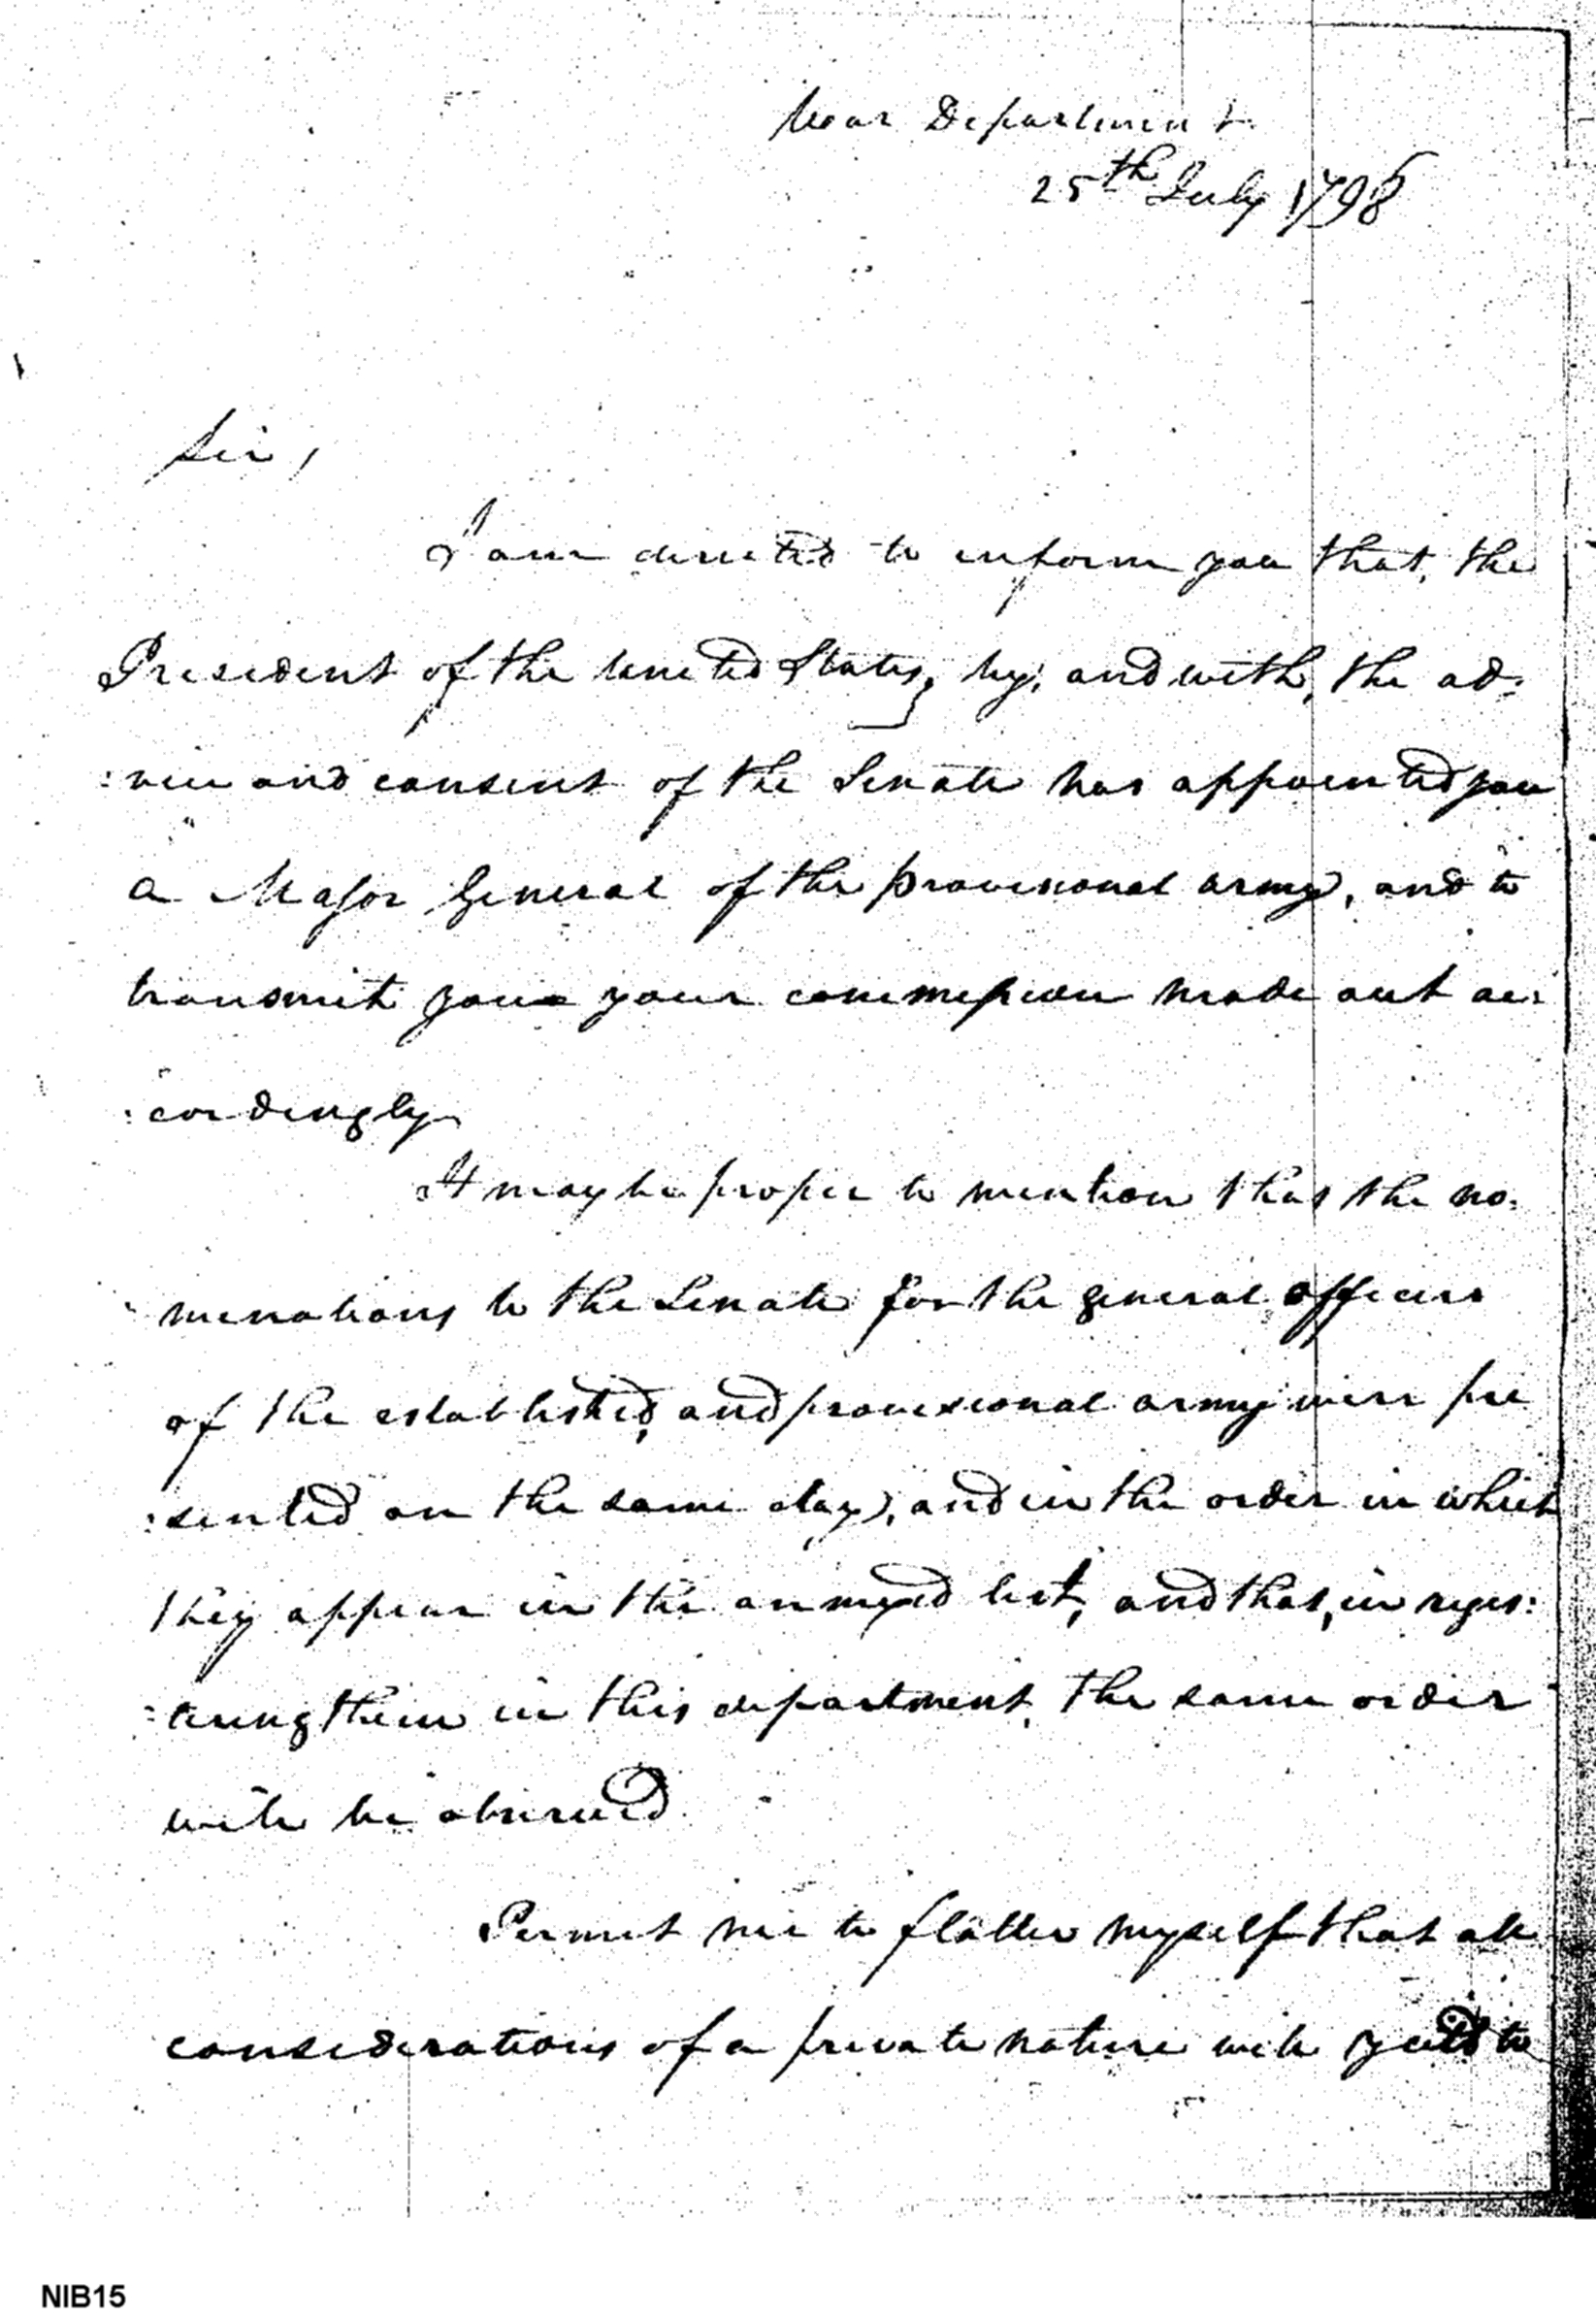 War Department
25th July 1798
Sir,
I am directed to inform you that, the
President of the United States, by, and with, the ad:
:vice and consent of the Senate has appointed you
a Major General of the provisional army, and to
transmit you your commission made out ac:
:cordingly
It may be proper to mention that the no:
:minations to the Senate for the general officers
of the established, and provisional army were pre
:sented on the same day, and in the order in which
they appear in the annexed list, and that, in regis:
:tering them in this department, the same order
will be observed.
Permit me to flatter myself that all
considerations of a private nature will yield to
NIB15